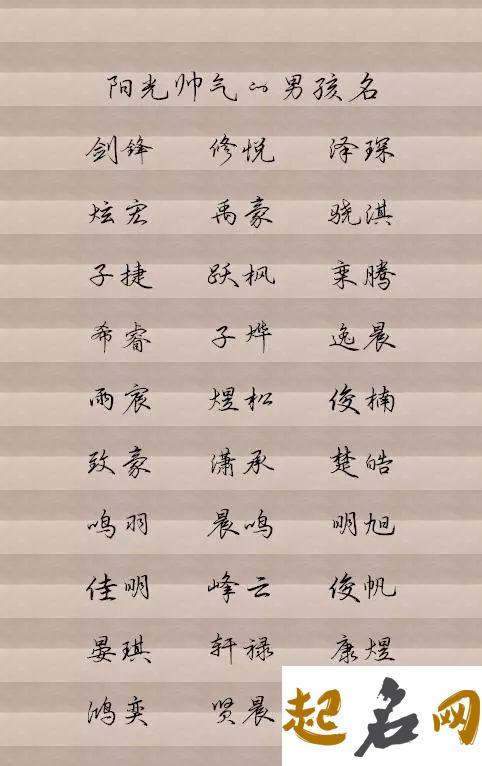 阳光帅气的男孩名
剑锋 修悦 泽琛
炫宏 禹豪 骁淇
子捷 跃枫 栾腾
希睿 子烨 逸晨
雨宸 煜松 俊楠
致豪 潇承 楚皓
鸣羽 晨鸣 明旭
佳明 峰云 俊帆
晏琪 轩禄 康煜
鸿奕 贤晨
起名网